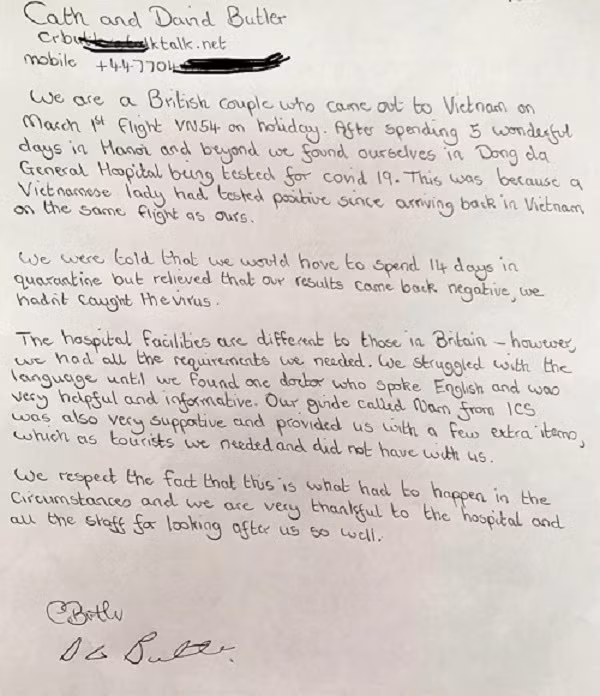 Cath and David Butler
talktalk.net
mobile +447704
We are a British couple who came out to Vietnam on
March 1st flight VN54 on holiday. After spending 5 wonderful
days in Hanoi and beyond we found ourselves in Dong da
General Hospital being tested for covid 19. This was because a
Vietnamese lady had tested positive since arriving back in Vietnam
on the same flight as ours.
We were told that we would have to spend 14 days in
quarantine but relieved that our results came back negative, we
hadn't caught the virus.
The hospital facilities are different to those in Britain – however,
we had all the requirements we needed. We struggled with the
language until we found one doctor who spoke English and was
very helpful and informative. Our guide called Nam from ICS
was also very supportive and provided us with a few extra items,
which as tourists we needed and did not have with us.
We respect the fact that this is what had to happen in the
circumstances and we are very thankful to the hospital and
all the staff for looking after us so well.
CButler
D G Butler.